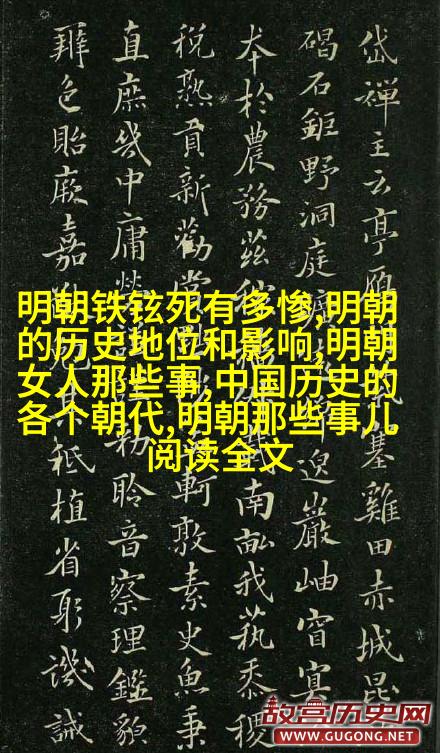 明朝铁铉死有多惨,明朝
的历史地位和影响,明朝
女人那些事,中国历史的
各个朝代,明朝那些事儿
阅读全文
岱禪主云亭雁塞雞田赤城昆
碣石鉅野洞庭曠邈巖岫窅冥
本於農務茲稼南畝我蓺黍稷
稅熟貢新勸賞軻敦素史魚秉
直庶幾中庸勞勑聆音察理鑑貌
辨色貽厥嘉猷勉其祗植省躬譏誡
故宫历史网
WWW.GUGONG.NET